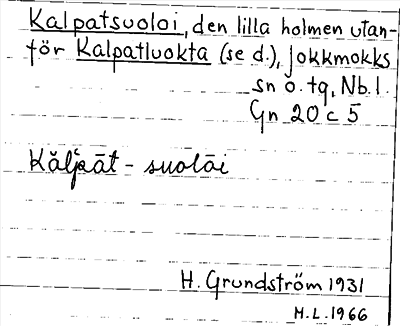 Kalpatsuoloi, den lilla holmen utan-
för Kalpatluokta (se d.), Jokkmokks
sn o. tg, Nb. l.
Gn 20 c 5
Kălpāt - suolāi
H. Grundström 1931
M.L. 1966